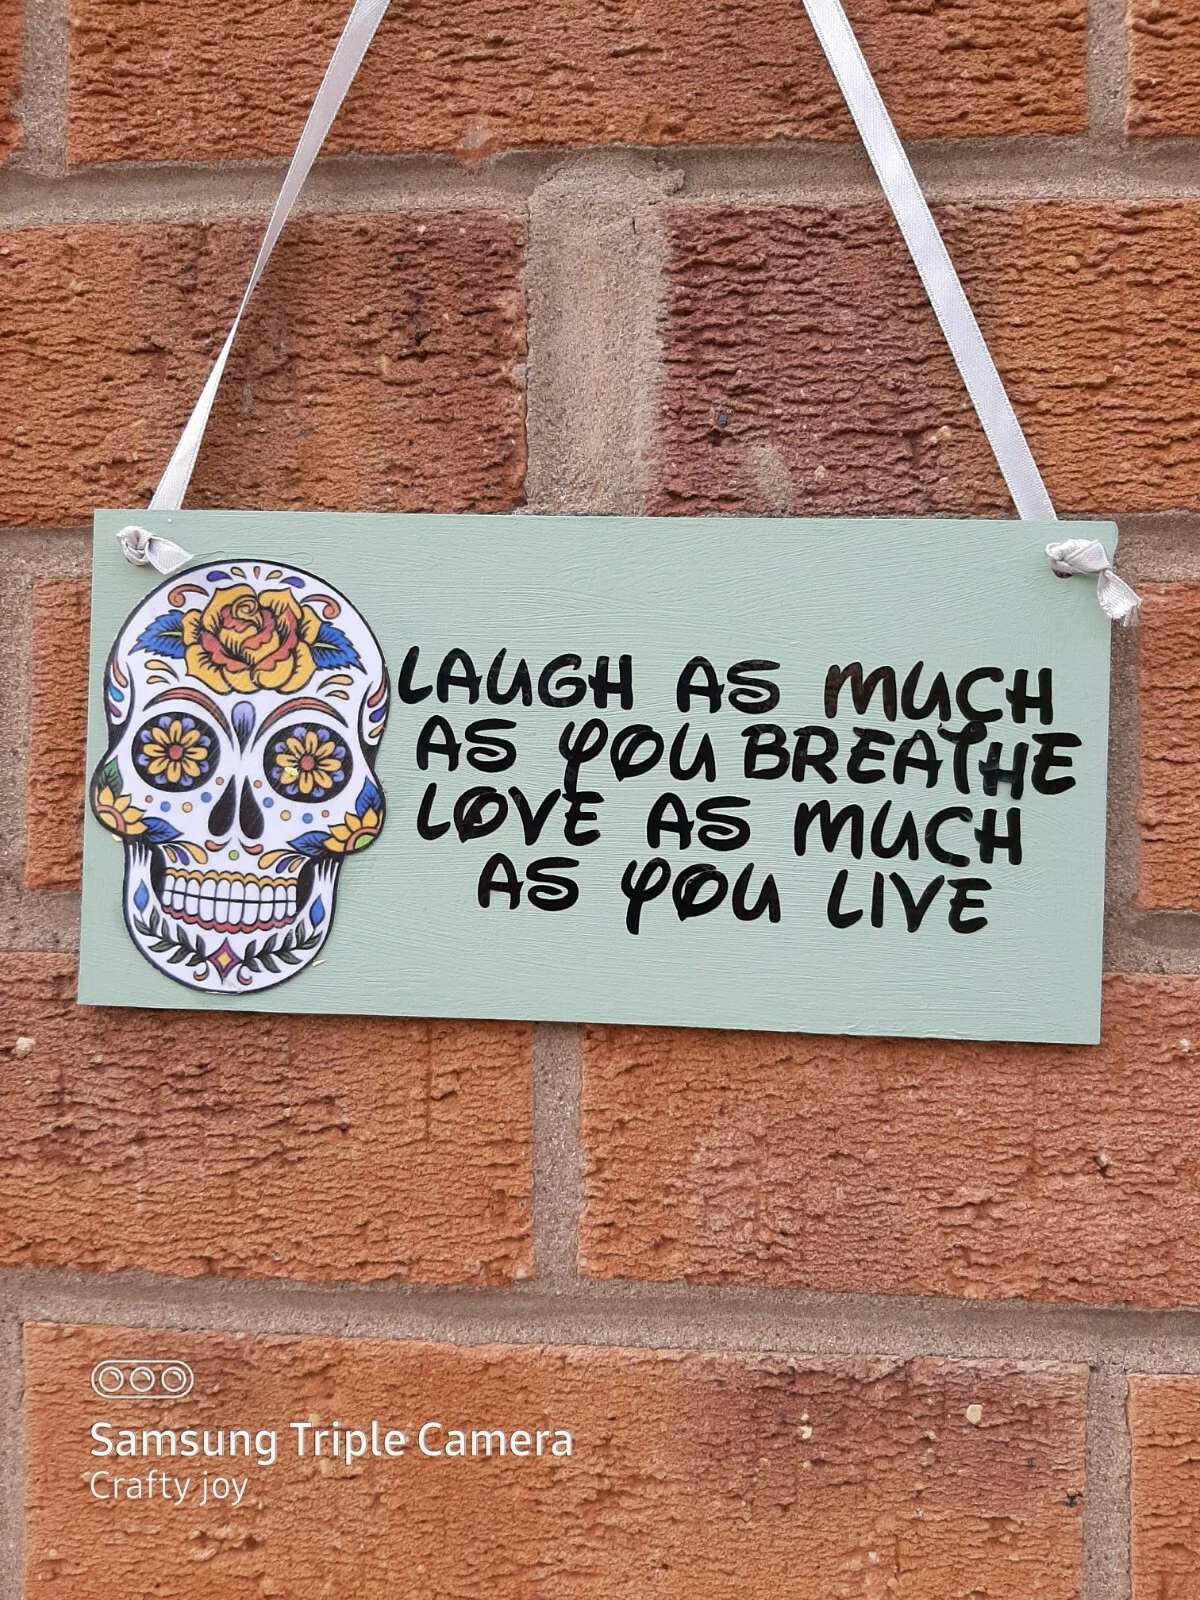 LAUGH AS MUCH
AS YOU BREATHE
LOVE AS MUCH
AS YOU LIVE
Samsung Triple Camera
Crafty joy